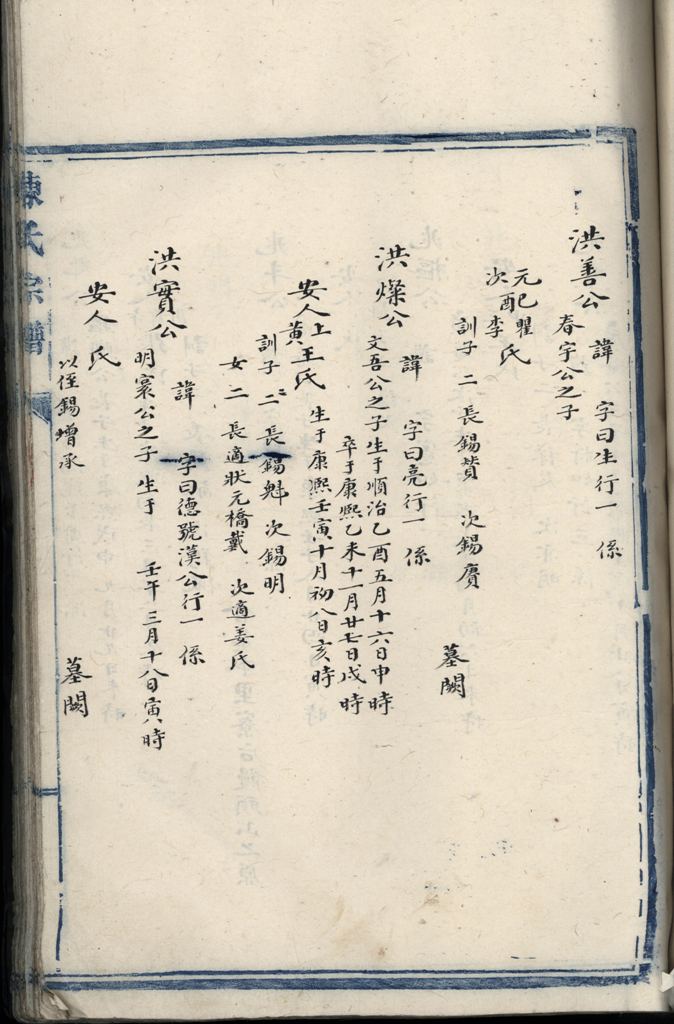 洪善公
諱 字曰生行一 係
春宇公之子
元配瞿
次配李 氏
訓子 二 長錫賛 次錫賡
墓闕
洪燦公
諱 字曰亮行一 係
文吾公之子生于順治乙酉五月十六日申時
卒于康熙乙未十一月廿七日戌時
安人上黄王氏 生于康熙壬寅十月初八日亥時
訓子 二 長錫魁 次錫明
女 二 長適狀元橋戴 次適姜氏
洪實公
諱 字曰德號漢公行一 係
明寰公之子 生于 壬午三月十八日寅時
安人 氏
以侄錫增承
墓闕
陳氏宗譜